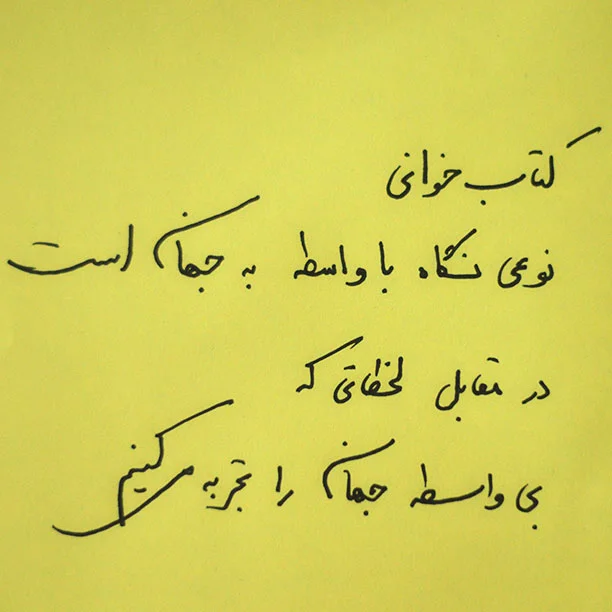 کتاب خوانی
نوعی نگاه با واسطه به جهان است
در مقابل لحظاتی که
بی واسطه جهان را تجربه می کنیم